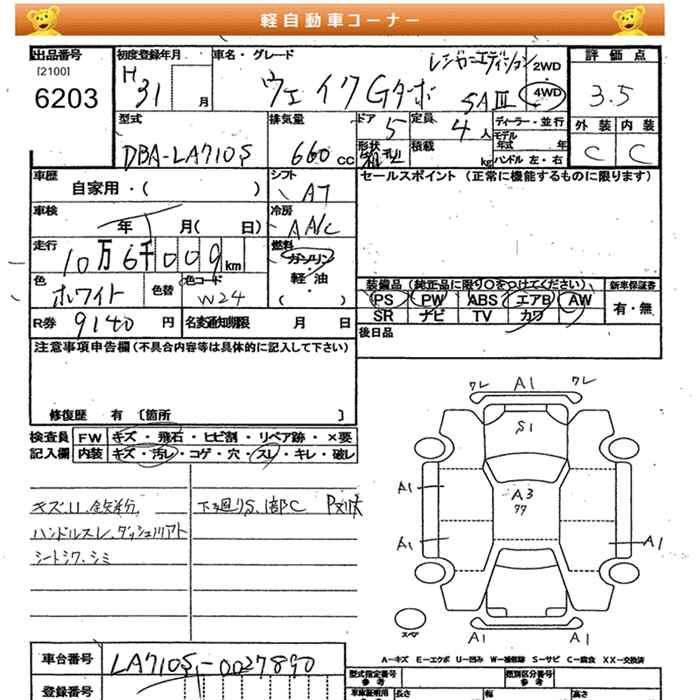 軽自動車コーナー
出品番号
[2100]
6203
初度登録年月
H31 月
車名・グレード
レジャーエディション
ウェイクGターボ SAⅢ
2WD
4WD
評価点
3.5
外装 内装
C C
型式
DBA-LA710S
排気量
660 CC
ドア 5
形状
定員 4人
積載 kg
ディーラー・並行
モデル年式 年
ハンドル 左・右
車歴
自家用・( )
シフト
AT
セールスポイント (正常に機能するものに限ります)
車検
年 月( 日)
冷房
AA/C
走行
10万6千009km
燃料
ガソリン
軽・油
( )
色
ホワイト
色替
色コード
W24
装備品 (純正品に限り○をつけてください)
PS PW ABS エアB AW
SR ナビ TV カワ
新車保証書
有・無
R券 9140 円
名変通知期限 月 日
後日品
注意事項申告欄(不具合内容等は具体的に記入して下さい)
修復歴 有 〔箇所 〕
検査員記入欄
FW キズ・飛石・ヒビ割・リペア跡・×要
内装 キズ・汚レ・コゲ・穴・スレ・キレ・破レ
キズ.U.鉄粉
ハンドルスレ.ダッシュリアト
シートシワ.シミ
下廻りS.1部C
ワレ A1 ワレ
S1
A3
A1 A1
A1 A1
A1 A1
スペア
A－キズ E－エクボ U－凹み W－補修跡 S－サビ C－腐食 XX－交換済
車台番号
LA710S-0027890
登録番号
型式指定番号
参考
類別区分番号
参考
車庫証明用
長さ 幅 高さ